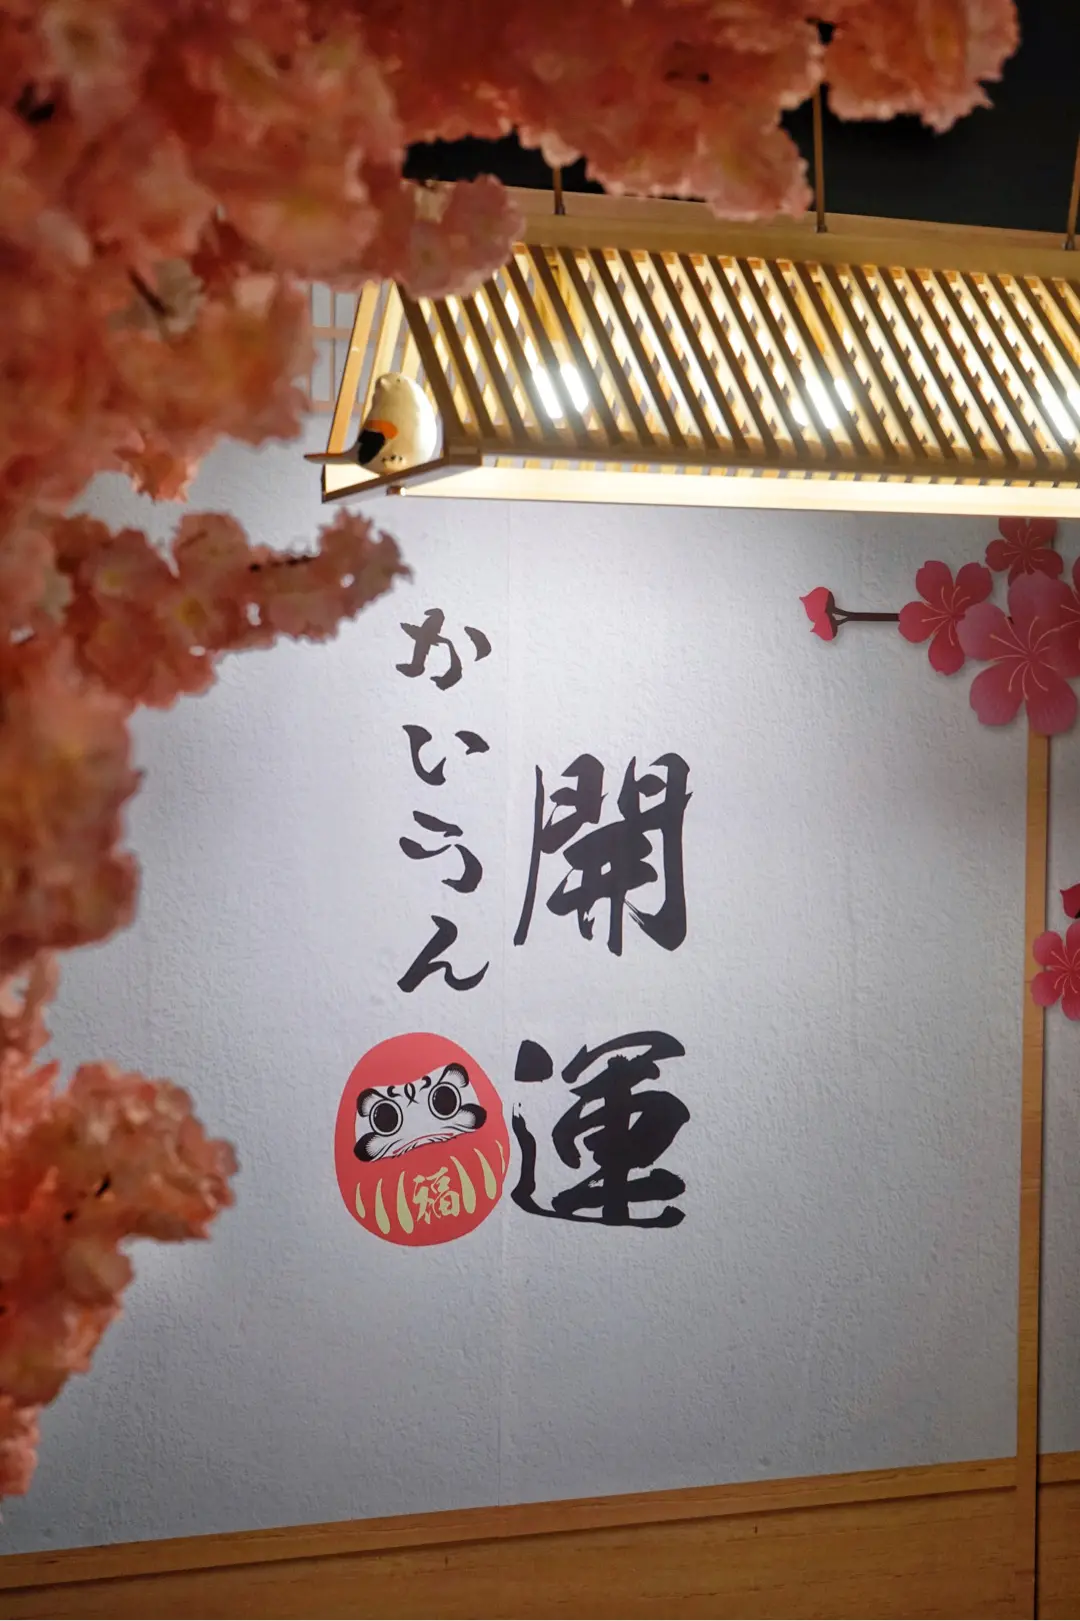 開運
かいうん
福